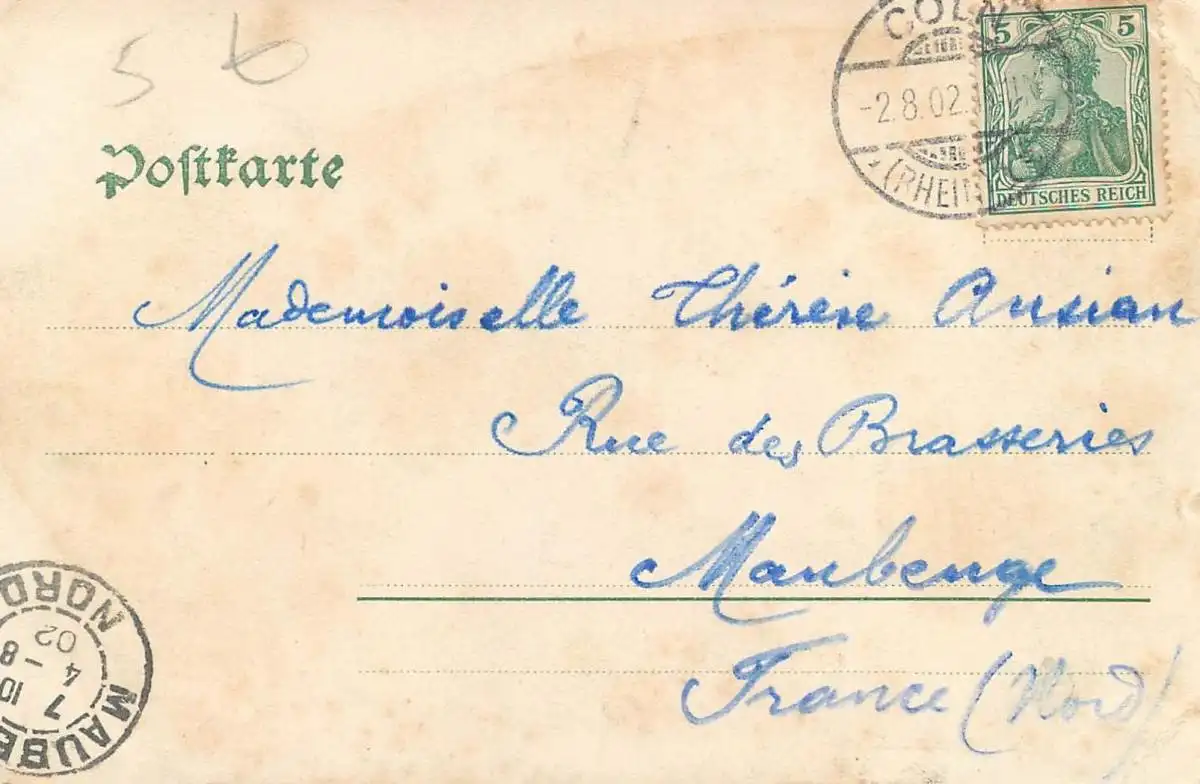 5 6
CÖLN
5 5
-2.8.02.
(RHEIN)
DEUTSCHES REICH
Postkarte
Mademoiselle Thérèse Ansian
Rue des Brasseries
Maubeuge
France (Nord)
NORD
02
4 -8
7 10
MAUBE